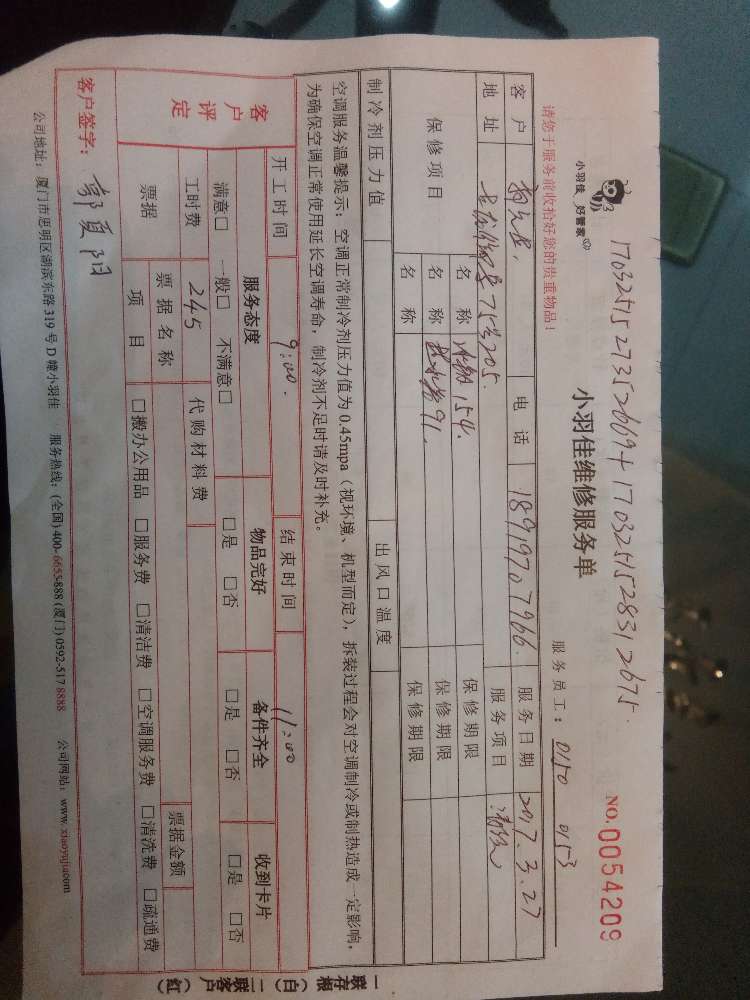 17032515273526694 1703251528312675.
小羽佳 好管家
小羽佳维修服务单
NO.0054209
请您于服务前收拾好您的贵重物品!
服务员工: 0150 0153
客户 电话 18919707966. 服务日期 2017.3.27
地址 75号205. 服务项目
保修项目 名称 水 154. 保修期限
名称 水 91. 保修期限
名称 保修期限
制冷剂压力值 出风口温度
空调服务温馨提示:空调正常制冷剂压力值为0.45mpa(视环境、机型而定),拆装过程会对空调制冷或制热造成一定影响,
为确保空调正常使用延长空调寿命,制冷剂不足时请及时补充。
开工时间 9:00. 结束时间 11:00
客户评定 服务态度 物品完好 备件齐全 收到卡片
满意□ 一般□ 不满意□ □是 □否 □是 □否 □是 □否
工时费 245 代购材料费
票据 票据名称 票据金额
项目 □搬办公用品 □服务费 □清洁费 □空调服务费 □清洗费 □疏通费
客户签字: 郭夏阳
公司地址:厦门市思明区湖滨东路319号D幢小羽佳 服务热线:(全国)400-6655-888(厦门)0592-517 8888 公司网站:www.xiaoyujia.com
一联存根(白)二联客户(红)